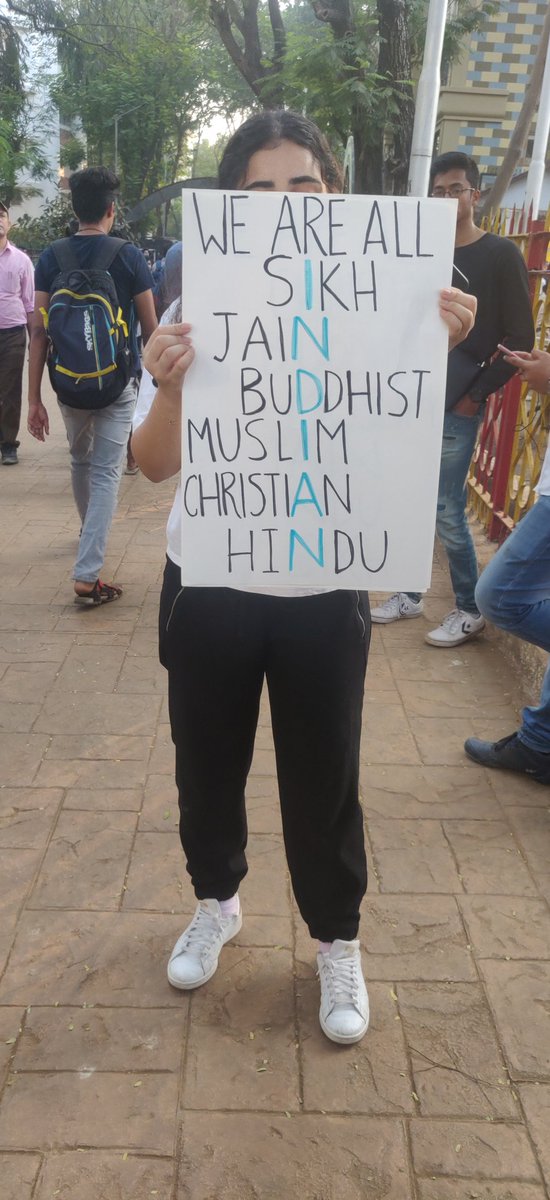 WE ARE ALL
SIKH
JAIN
BUDDHIST
MUSLIM
CHRISTIAN
HINDU
SKYBAGS